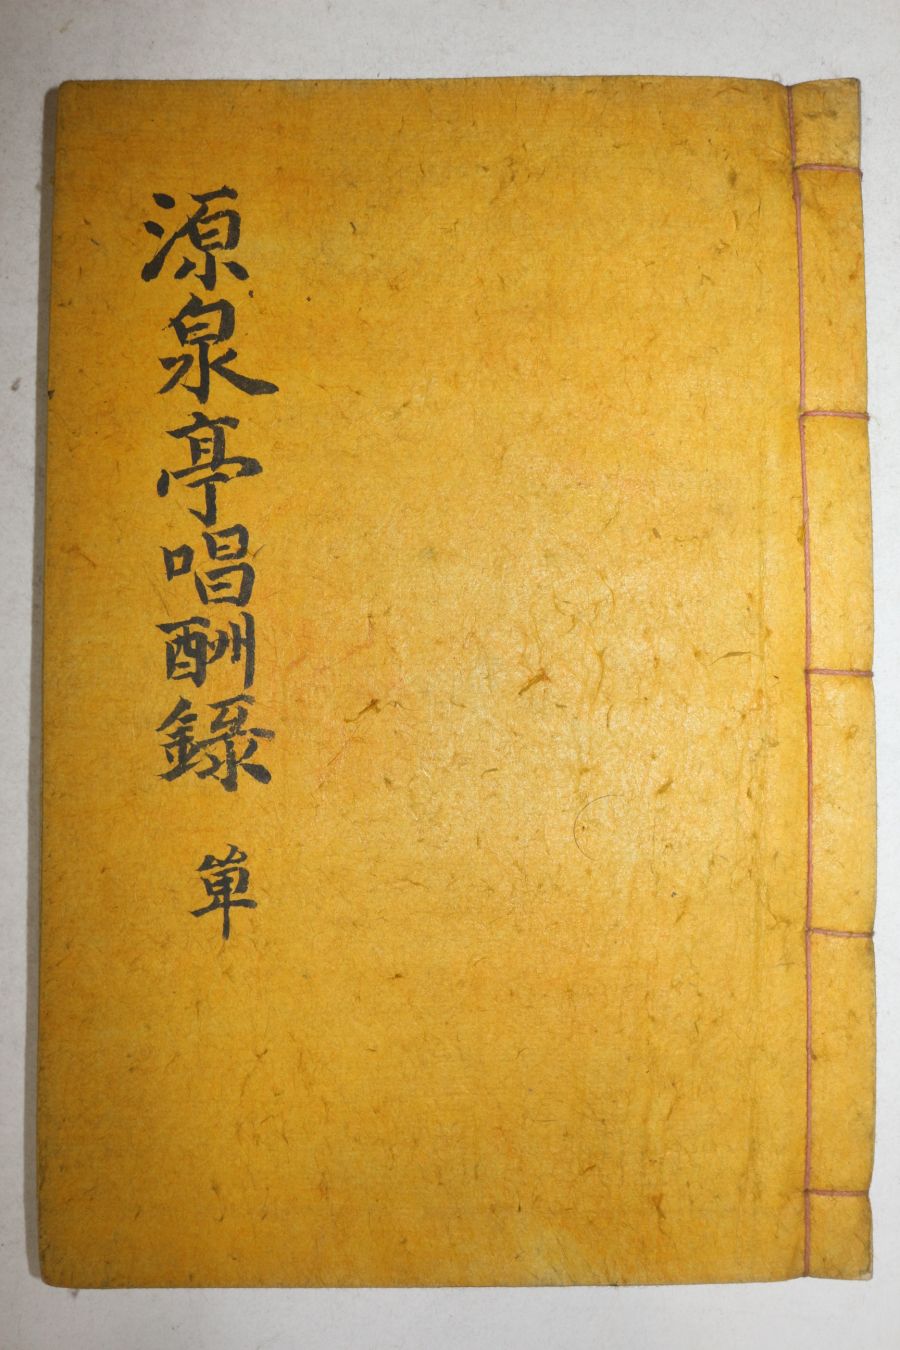 源泉亭唱酬錄 單